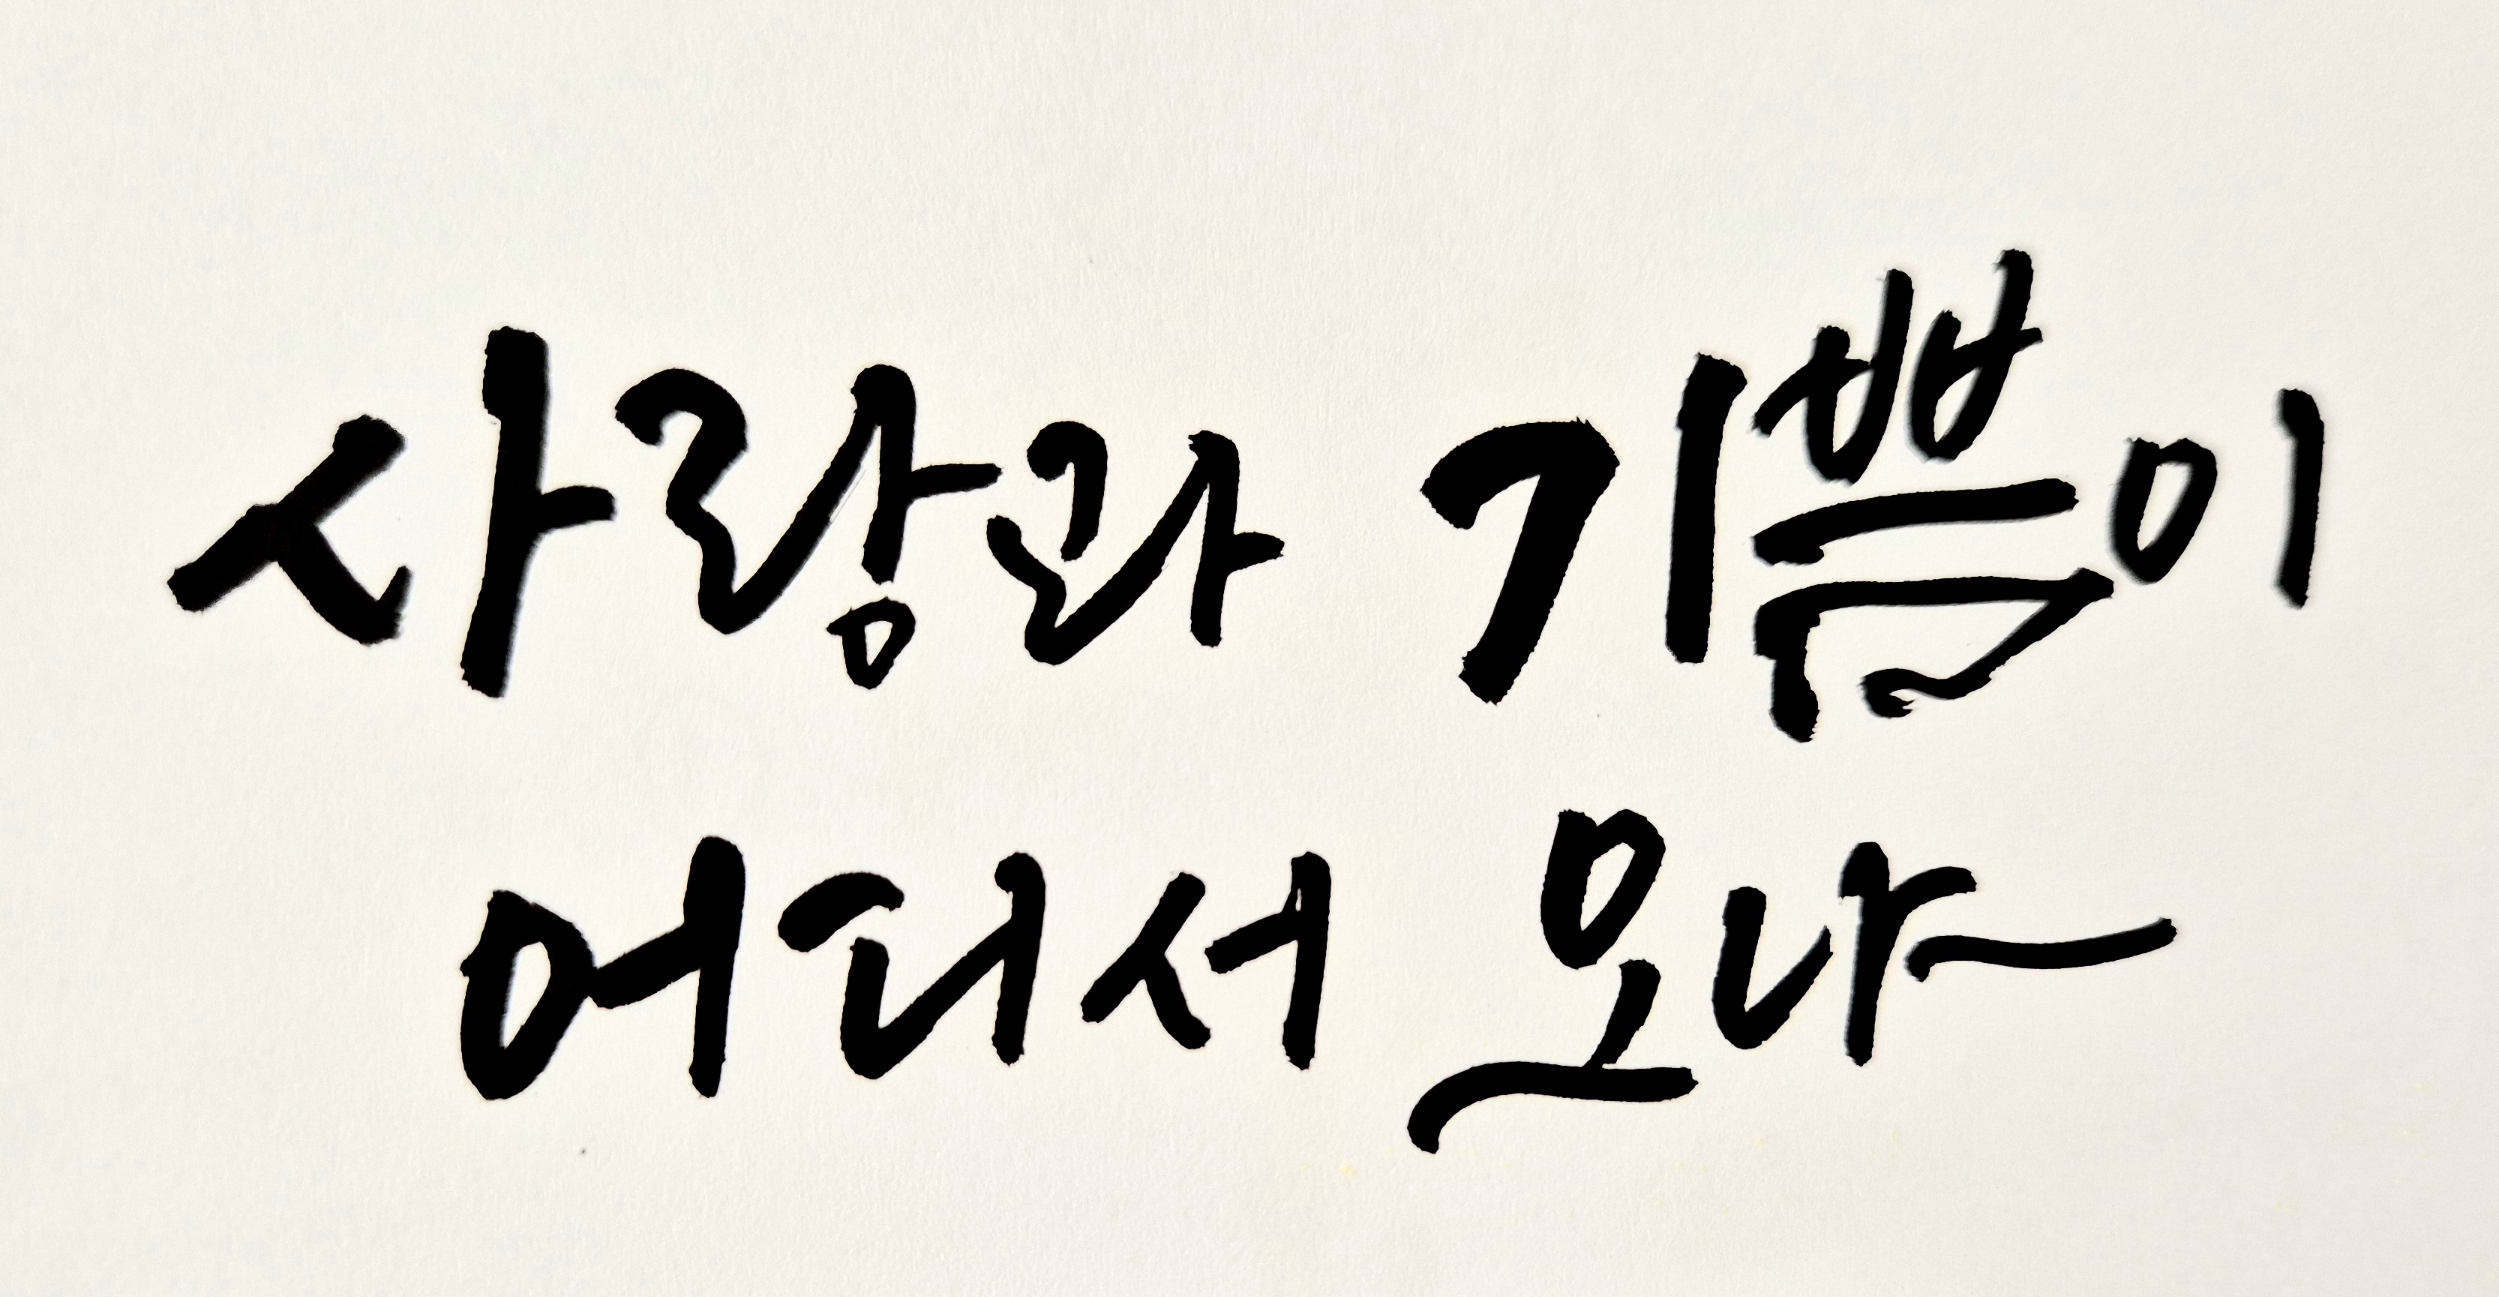 사랑과 기쁨이
어디서 오나